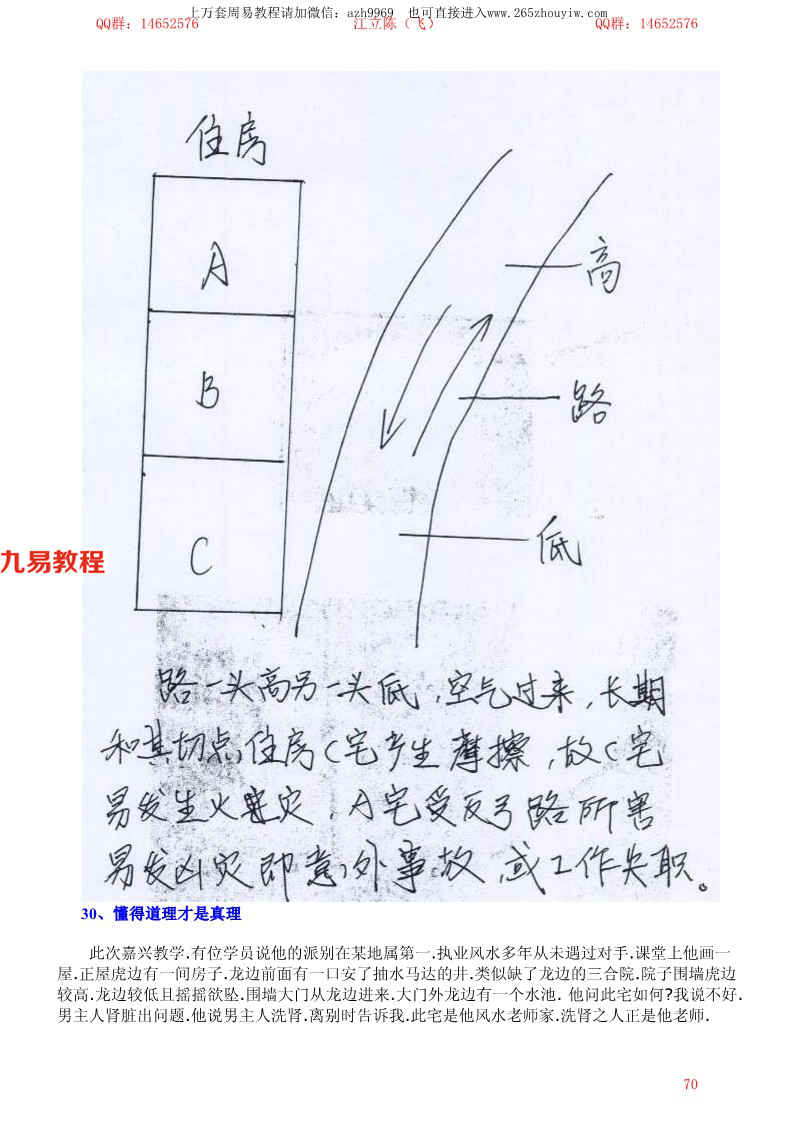 上万套周易教程请加微信：azh9969 也可直接进入www.265zhouyiw.com
QQ群：14652576 江立陈（飞） QQ群：14652576
住房
A
高
B
路
C
低
九易教程
路一头高另一头低，空气过来，长期
和其切点住房C宅产生摩擦，故C宅
易发生火灾，A宅受反弓路所害
易发凶灾即意外事故，或工作失职。
30、懂得道理才是真理
此次嘉兴教学.有位学员说他的派别在某地属第一.执业风水多年从未遇过对手.课堂上他画一
屋.正屋虎边有一间房子.龙边前面有一口安了抽水马达的井.类似缺了龙边的三合院.院子围墙虎边
较高.龙边较低且摇摇欲坠.围墙大门从龙边进来.大门外龙边有一个水池. 他问此宅如何?我说不好.
男主人肾脏出问题.他说男主人洗肾.离别时告诉我.此宅是他风水老师家.洗肾之人正是他老师.
70